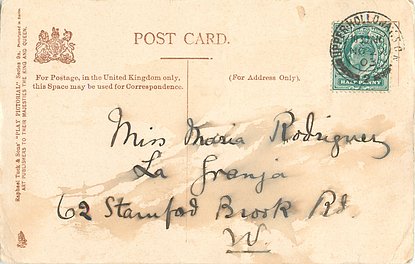 POST CARD.
For Postage, in the United Kingdom only,
this Space may be used for Correspondence.
(For Address Only).
HALF PENNY
Raphael Tuck & Sons' "PLAY PICTORIAL" Series
ART PUBLISHERS TO THEIR MAJESTIES THE KING AND QUEEN.
Miss Maria Rodriguez
La Granja
62 Stamford Brook Rd.
W.